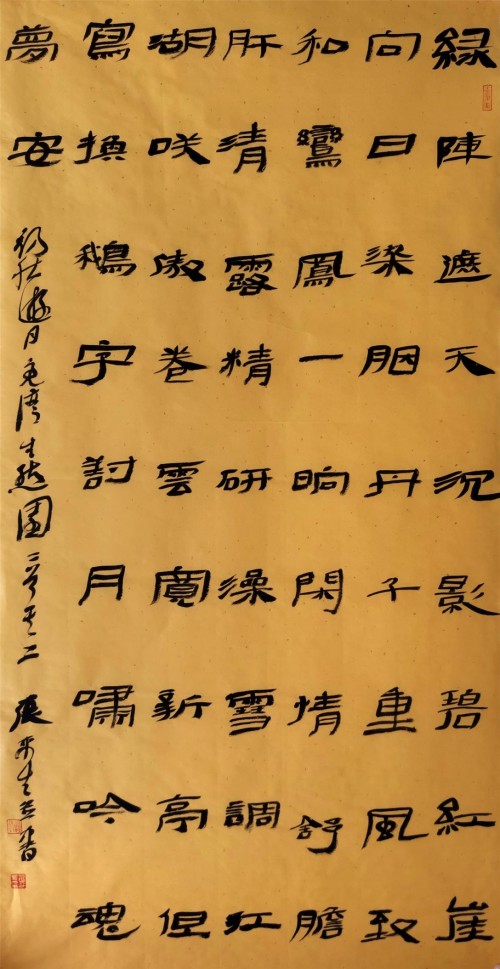 緑陣遮天沉影碧紅崖
向日染胭丹千重風致
和鸞鳳一晌閑情舒膽
肝清露精研澡雪調紅
湖咲傲卷雲寬新亭但
寫換鵝字討月嘯吟魂
夢安
初秋遊月亮灣生態園
張平生并書